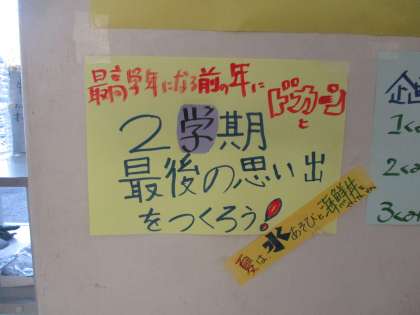 最高学年になる前の年に
ドカーンと
2学期
最後の思い出
をつくろう!
夏は水あそびと海鮮丼
企
1く
2く
3く